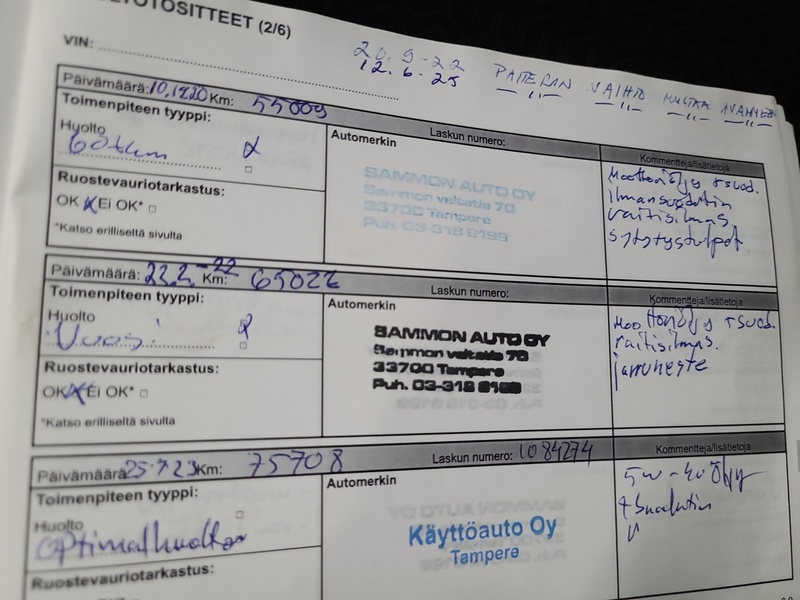 TOTOSITTEET (2/6)
VIN:
20.9-22
12.6.25
PATTERAN VAIHTO MUSTAA AVAIMEEN
— " — — " — — " — — " —
Päivämäärä: 10.1920 Km: 55009
Laskun numero:
Toimenpiteen tyyppi:
Huolto
60tkm
Ruostevauriotarkastus:
OK X Ei OK* □
*Katso erilliseltä sivulta
Automerkin
SAMMON AUTO OY
Sammon valtatie 70
33700 Tampere
Puh. 03-318 8199
Kommentteja/lisätietoja
Moottoriöljy + suod.
ilmansuodatin
raitisilmas.
sytytystulpat
Päivämäärä: 22.2.-22 Km: 65022
Laskun numero:
Toimenpiteen tyyppi:
Huolto
Vuosi
Ruostevauriotarkastus:
OK X Ei OK* □
*Katso erilliseltä sivulta
Automerkin
SAMMON AUTO OY
Sammon valtatie 70
33700 Tampere
Puh. 03-318 8199
Kommentteja/lisätietoja
Moottoriöljy + suod.
raitisilmas.
jarruneste
Päivämäärä 25.1.23 Km: 75708
Laskun numero: 1084274
Toimenpiteen tyyppi:
Huolto
Optimalhuolto
Ruostevauriotarkastus:
OK Ei OK*
Automerkin
Käyttöauto Oy
Tampere
Kommentteja/lisätietoja
5w-40 Öljy
+ Suodatin